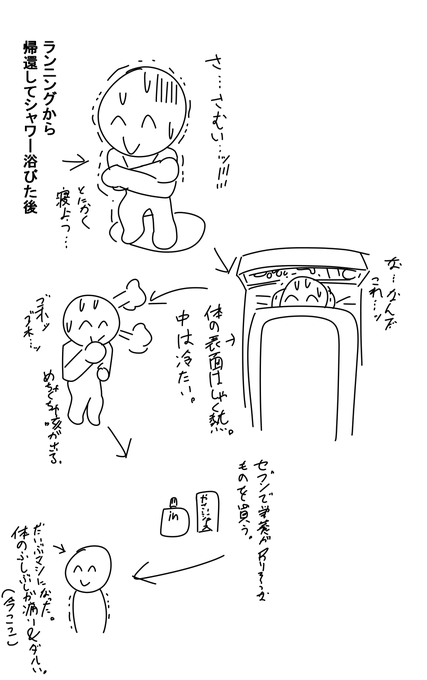 ランニングから
帰還してシャワー浴びた後
さ…さむい…ッ!!!
とにかく
寝よっ…
な…なんだ
これ…ッ
体の表面はしゃく熱。
中は冷たい。
ゴホッ
ゴホ…ッ
めちゃくちゃ咳が出る。
セブンで栄養がありそうな
ものを買う。
in
やさい
だいぶマシになった。
体のふしぶしが痛い&ダルい。
(今ココ)